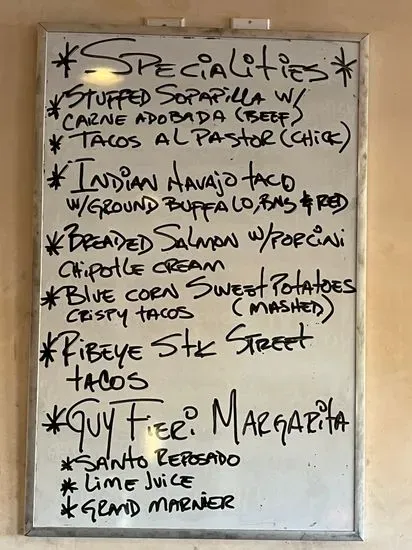 *Specialities*
*Stuffed Sopapilla w/
Carne Adobada (Beef)
*Tacos Al Pastor (Chick)
*Indian Navajo Taco
w/Ground Buffalo, Bns & Red
*Breaded Salmon w/Porcini
Chipotle Cream
*Blue Corn Sweet Potatoes
Crispy Tacos (Mashed)
*Ribeye Stk Street
Tacos
*Guy Fieri Margarita
*Santo Reposado
*Lime Juice
*Grand Marnier